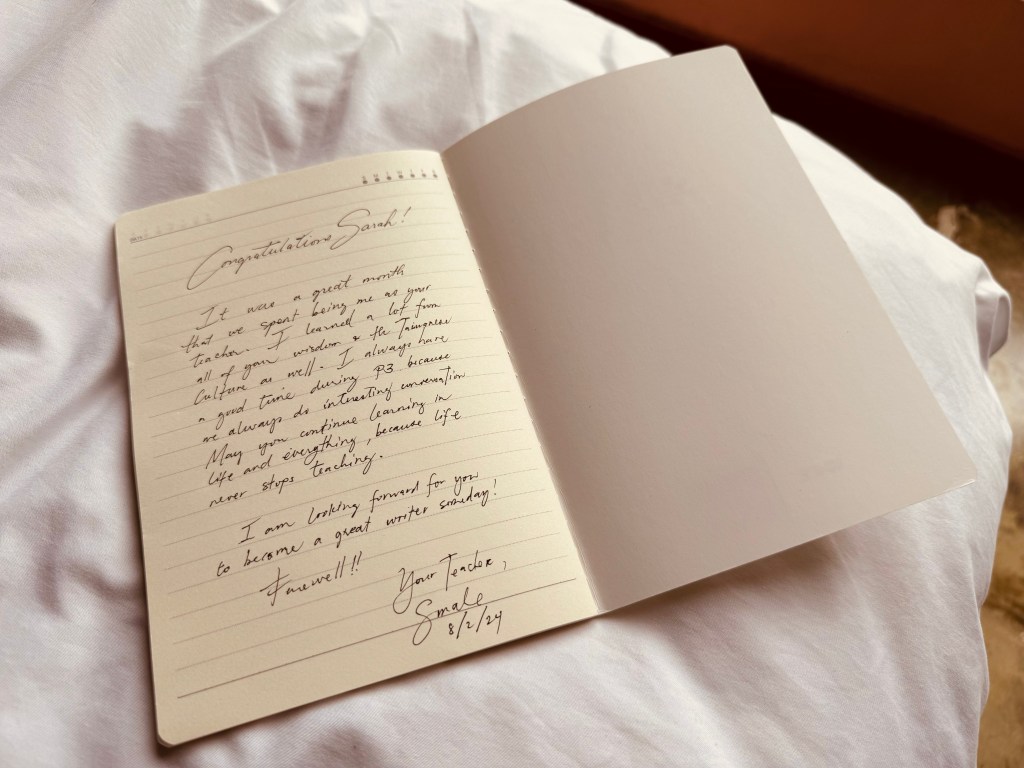 Congratulations Sarah!
It was a great month
that we spent being me as your
teacher. I learned a lot from
all of your wisdom & the Taiwanese
Culture as well. I always have
a good time during P3 because
we always do interesting conversation
May you continue learning in
life and everything, because life
never stops teaching.
I am looking forward for you
to become a great writer someday!
Farewell!!
Your Teacher,
Smale
8/2/24